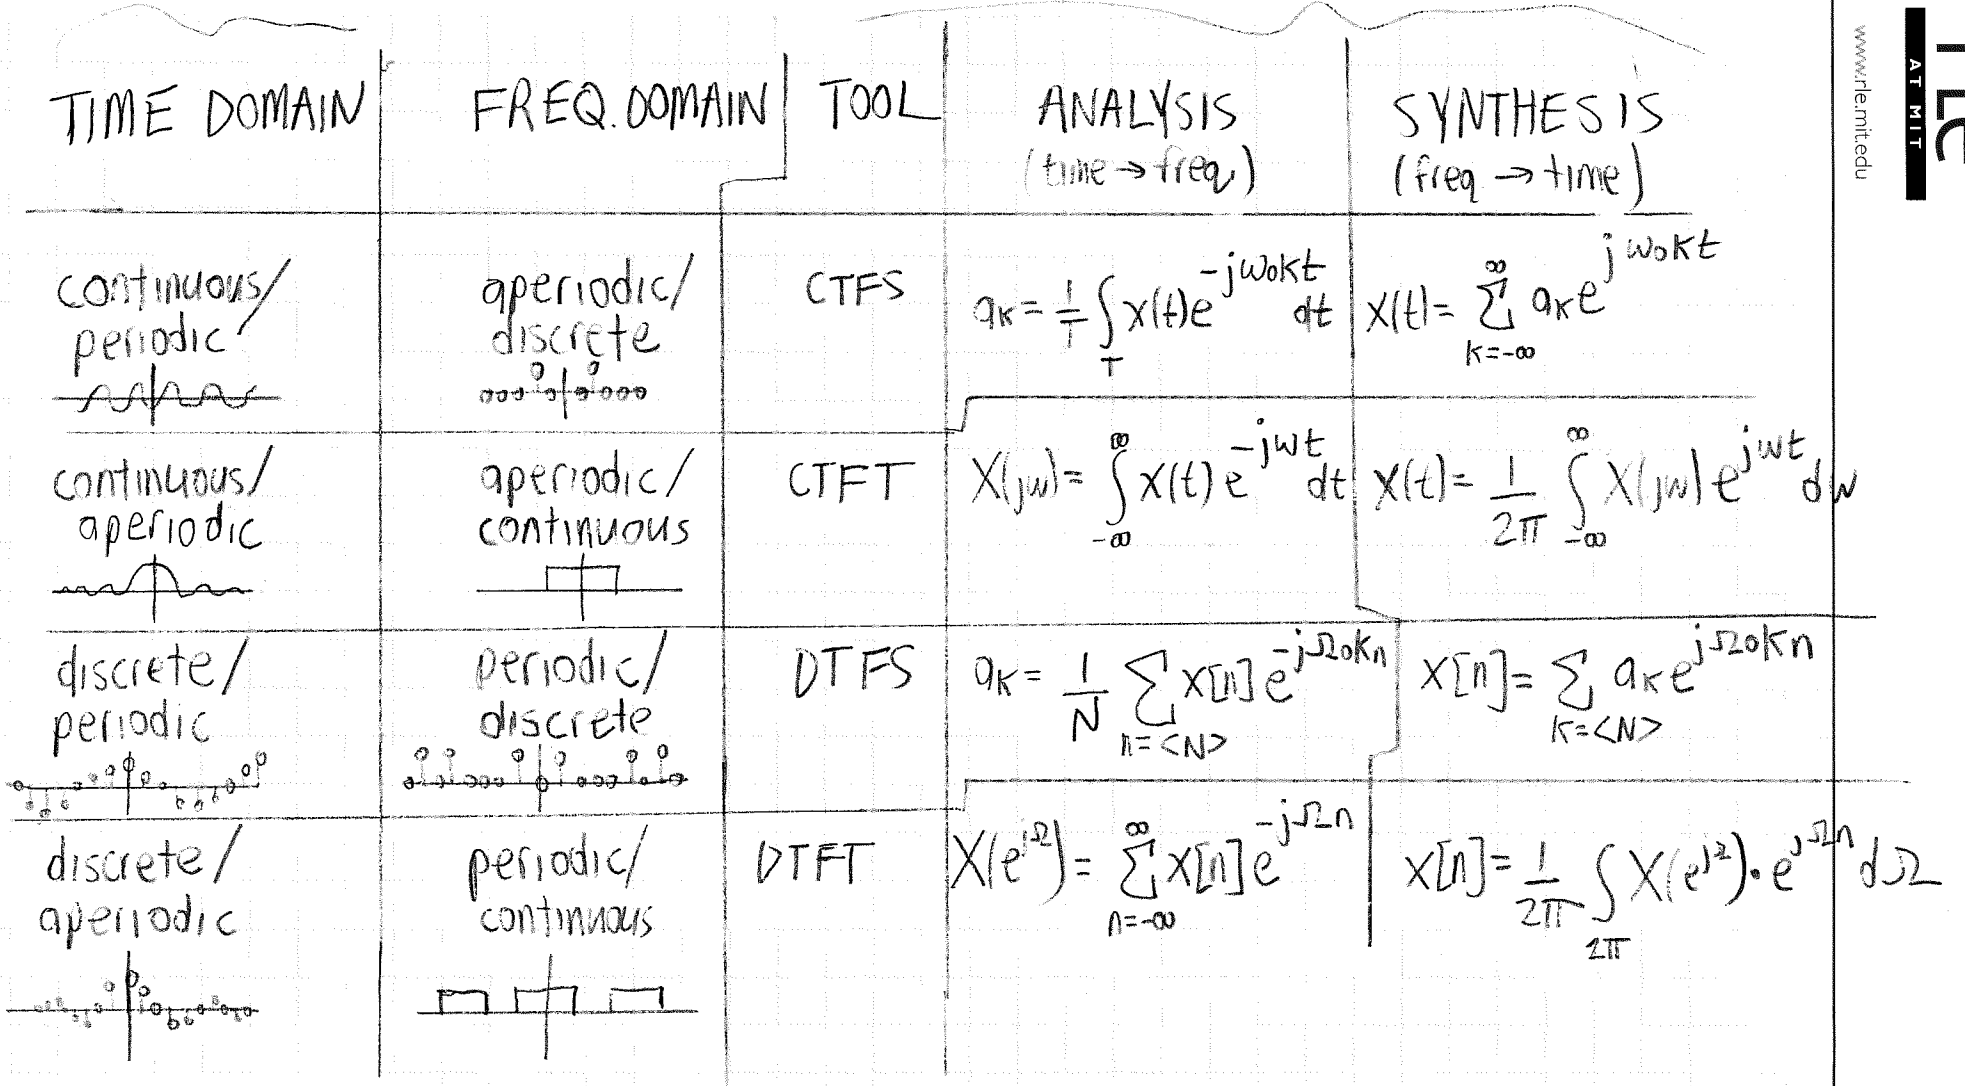 TIME DOMAIN
FREQ. DOMAIN
TOOL
ANALYSIS
(time → freq)
SYNTHESIS
(freq → time)
continuous/
periodic
aperiodic/
discrete
CTFS
aₖ = 1/T ∫_T x(t)e^{-jω₀kt} dt
x(t) = Σ_{k=-∞}^{∞} aₖe^{jω₀kt}
continuous/
aperiodic
aperiodic/
continuous
CTFT
X(jω) = ∫_{-∞}^{∞} x(t)e^{-jωt} dt
x(t) = 1/2π ∫_{-∞}^{∞} X(jω)e^{jωt} dω
discrete/
periodic
periodic/
discrete
DTFS
aₖ = 1/N Σ_{n=<N>} x[n]e^{-jΩ₀kn}
x[n] = Σ_{k=<N>} aₖe^{jΩ₀kn}
discrete/
aperiodic
periodic/
continuous
DTFT
X(e^{jΩ}) = Σ_{n=-∞}^{∞} x[n]e^{-jΩn}
x[n] = 1/2π ∫_{2π} X(e^{jΩ})·e^{jΩn} dΩ
AT MIT
www.rle.mit.edu